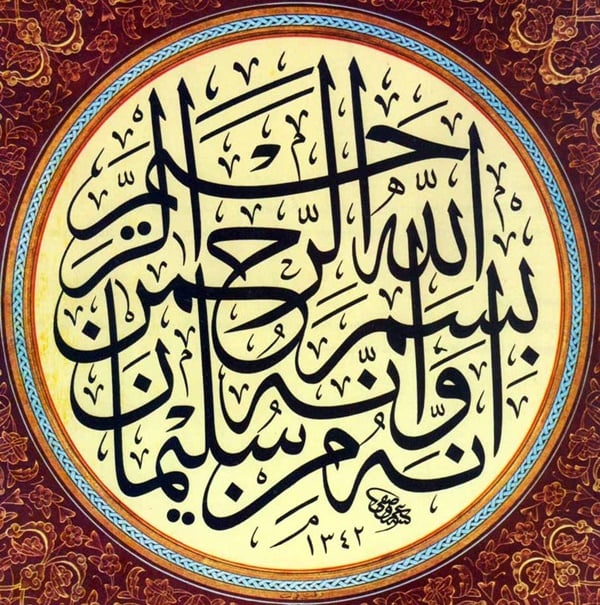 انه من سليمان
وانه بسم
الله الرحمن
الرحيم
١٣٤٢